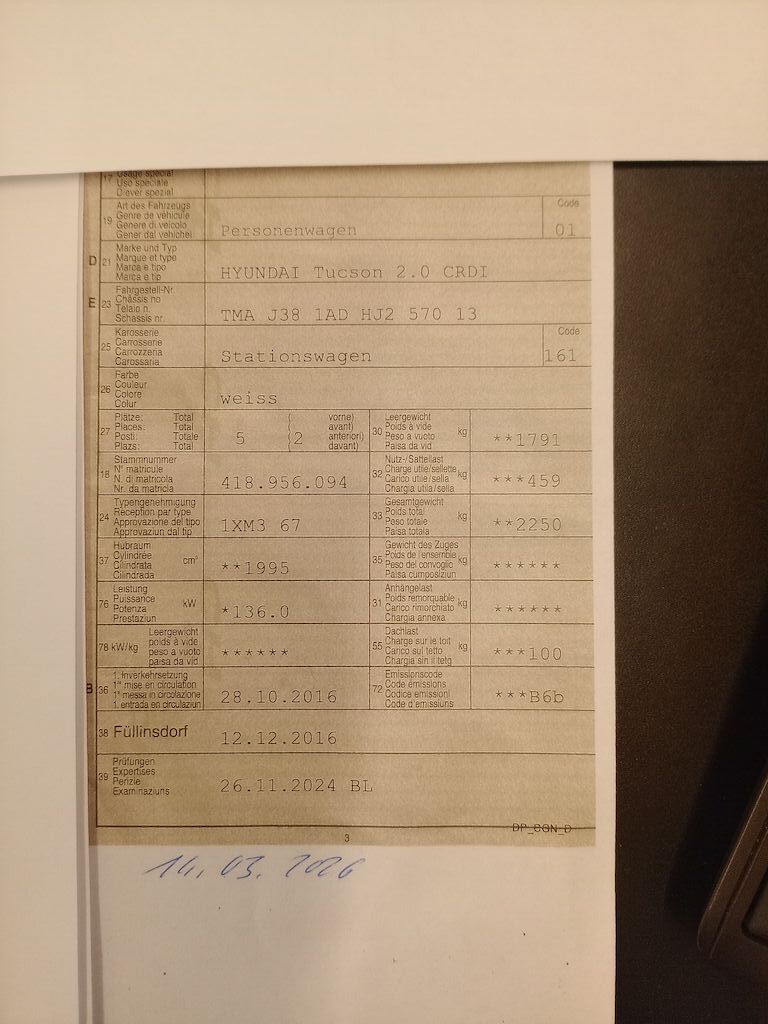 17 Usage spécial
Uso speciale
Diever spezial
19 Art des Fahrzeugs
Genre de véhicule
Genere di veicolo
Gener dal vehichel
Personenwagen
Code
01
D 21 Marke und Typ
Marque et type
Marca e tipo
Marca e tip
HYUNDAI Tucson 2.0 CRDI
E 23 Fahrgestell-Nr.
Châssis no
Telaio n.
Schassis nr.
TMA J38 1AD HJ2 570 13
25 Karosserie
Carrosserie
Carrozzeria
Carossaria
Stationswagen
Code
161
26 Farbe
Couleur
Colore
Colur
weiss
27 Plätze: Total
Places: Total
Posti: Totale
Plazs: Total
5
(2
vorne)
avant)
anteriori)
davant)
30 Leergewicht
Poids à vide
Peso a vuoto
Paisa da vid
kg
**1791
18 Stammnummer
N° matricule
N. di matricola
Nr. da matricla
418.956.094
32 Nutz-/Sattellast
Charge utile/sellette
Carico utile/sella
Chargia utila/sella
kg
***459
24 Typengenehmigung
Réception par type
Approvazione del tipo
Approvaziun dal tip
1XM3 67
33 Gesamtgewicht
Poids total
Peso totale
Paisa totala
kg
**2250
37 Hubraum
Cylindrée
Cilindrata
Cilindrada
cm³
**1995
35 Gewicht des Zuges
Poids de l'ensemble
Peso del convoglio
Paisa cumposiziun
kg
******
76 Leistung
Puissance
Potenza
Prestaziun
kW
*136.0
31 Anhängelast
Poids remorquable
Carico rimorchiato
Chargia annexa
kg
******
78 kW/kg
Leergewicht
poids à vide
peso a vuoto
paisa da vid
******
55 Dachlast
Charge sur le toit
Carico sul tetto
Chargia sin il tetg
kg
***100
B 36 1. Inverkehrsetzung
1re mise en circulation
1a messa in circolazione
1. entrada en circulaziun
28.10.2016
72 Emissionscode
Code émissions
Codice emissioni
Code d'emissiuns
***B6b
38 Füllinsdorf
12.12.2016
39 Prüfungen
Expertises
Perizie
Examinaziuns
26.11.2024 BL
DP_CGN_D
3
14.03.2026